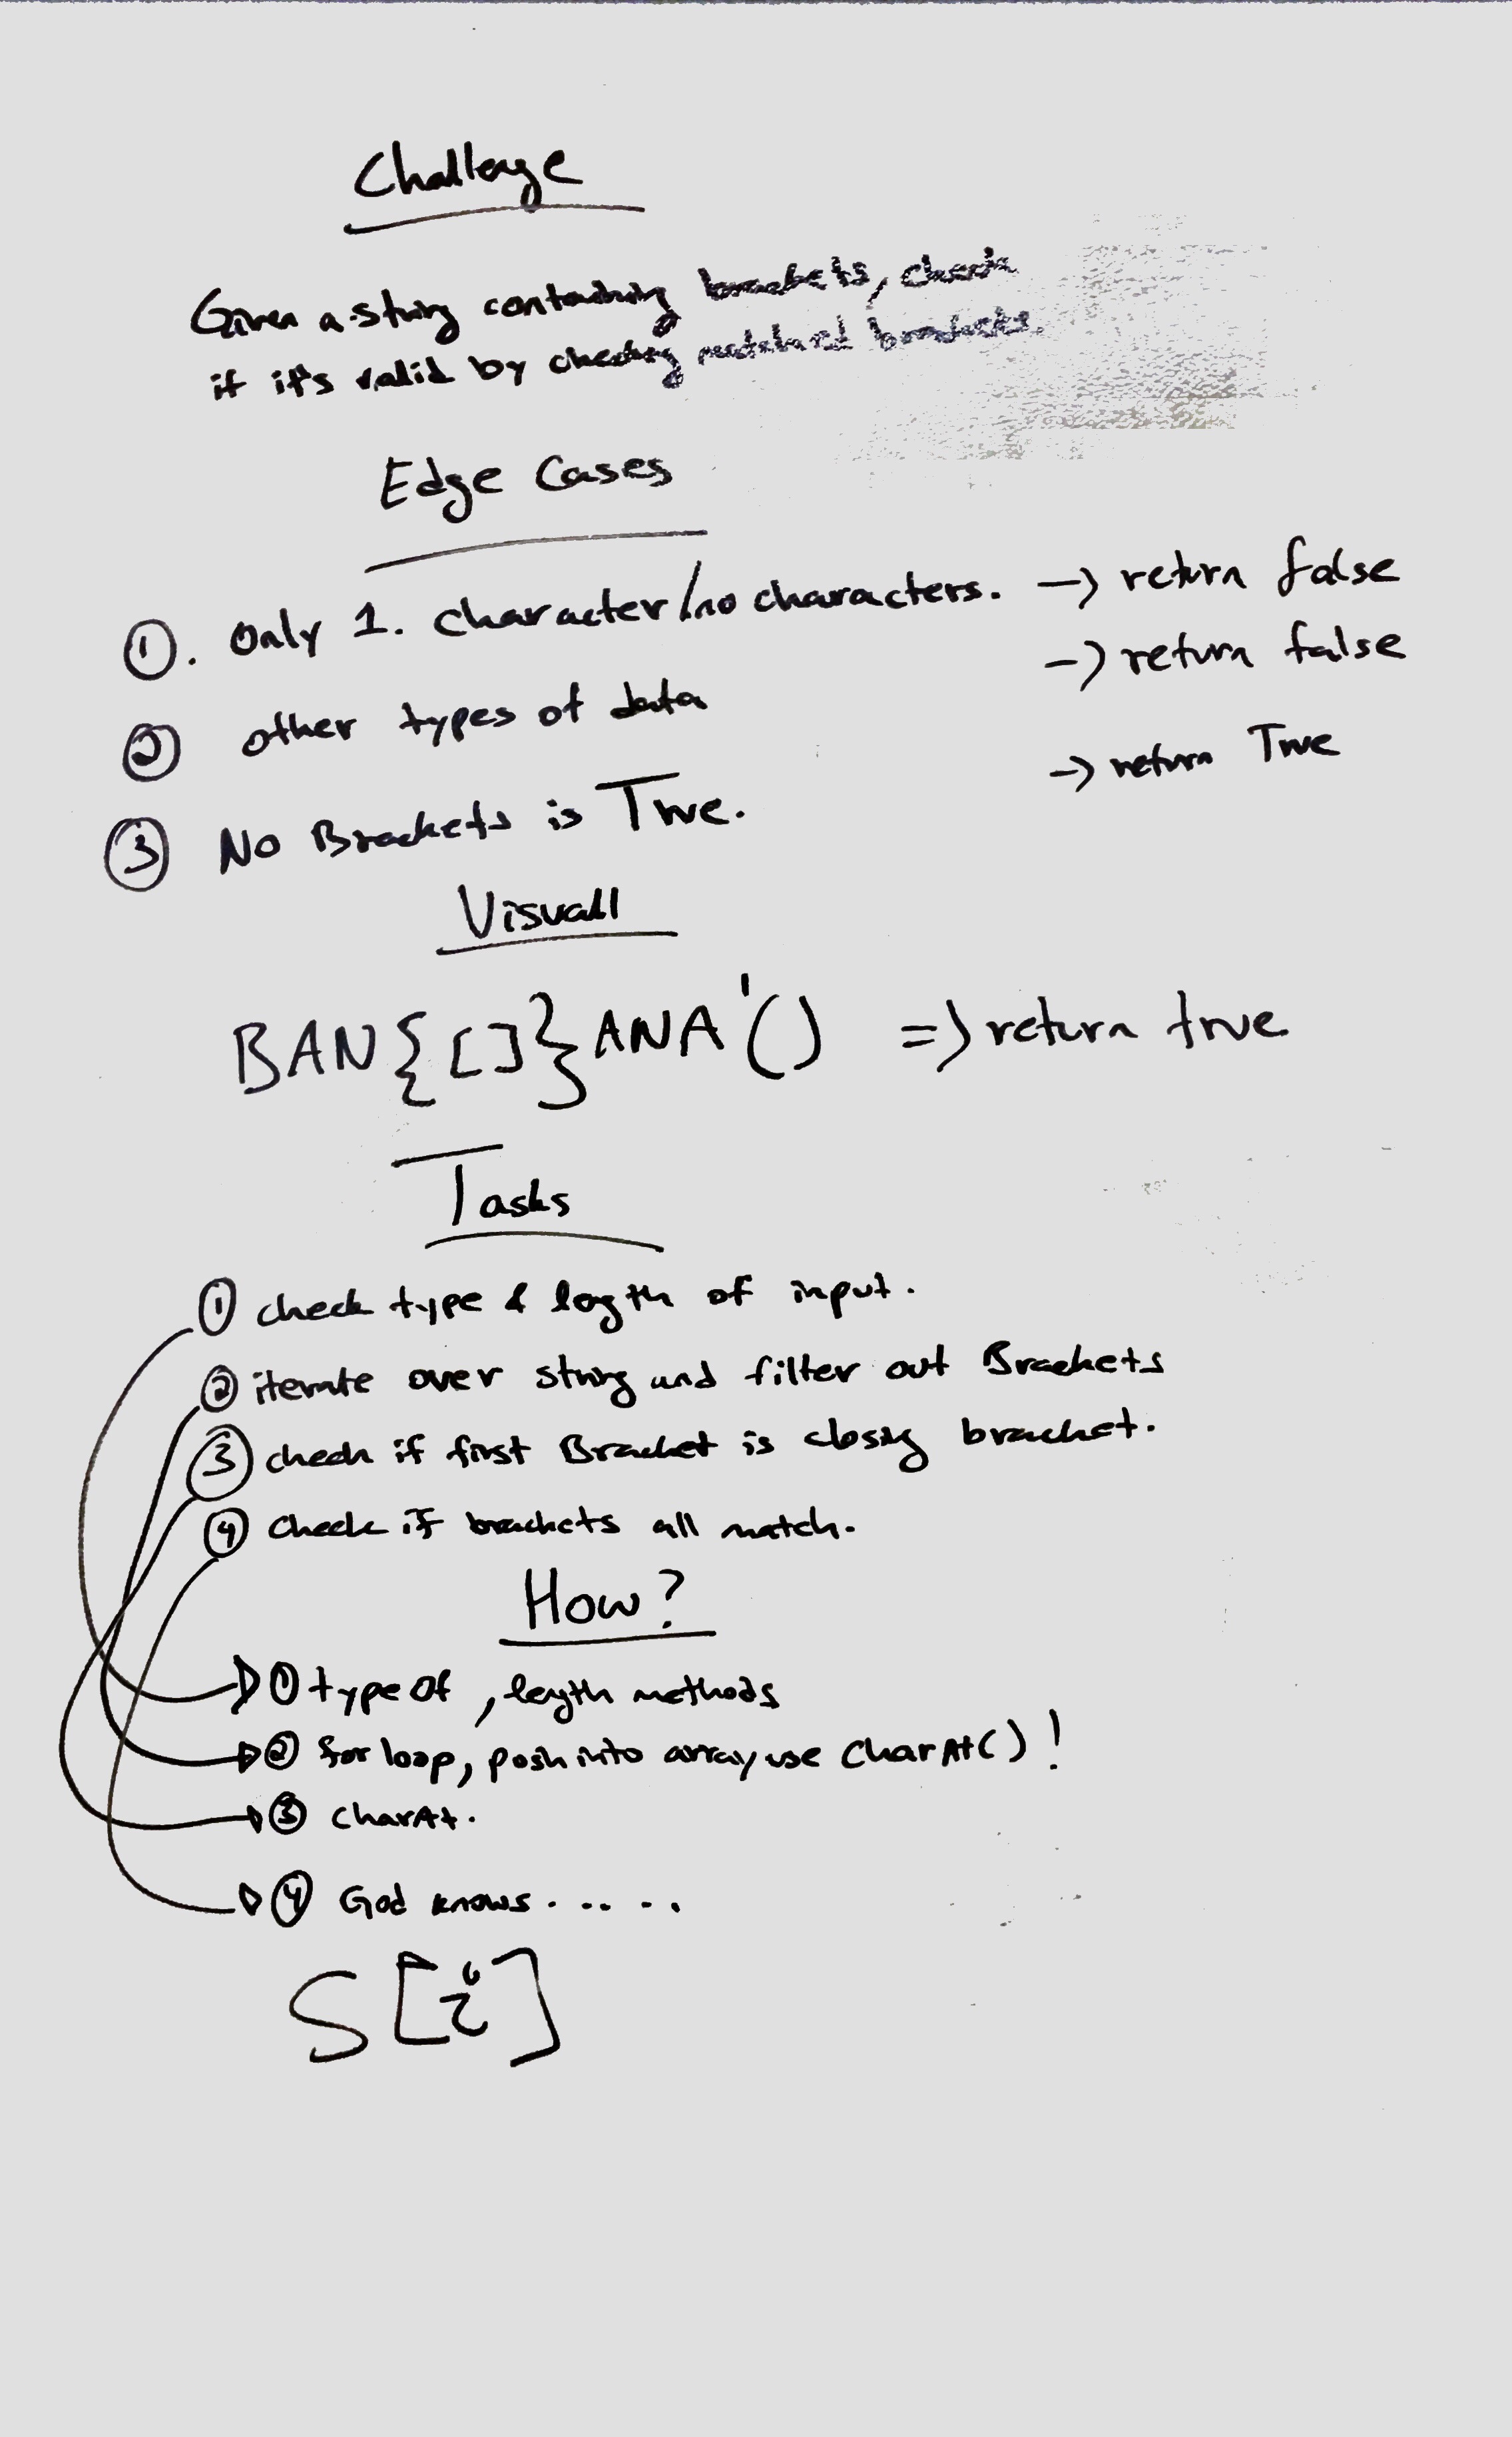 Challenge
Given a string containing brackets, check
if it's valid by checking matched brackets.
Edge Cases
①. Only 1. Character/no characters. -> return false
② other types of data -> return false
③ No Brackets is True. -> return True
Visuall
BAN{[]}ANA'() => return true
Tasks
① check type & length of input.
② iterate over string and filter out Brackets
③ check if first Bracket is closing bracket.
④ Check if brackets all match.
How?
① typeOf, length methods
② for loop, push into array use CharAt()!
③ CharAt.
④ God knows......
S[i]